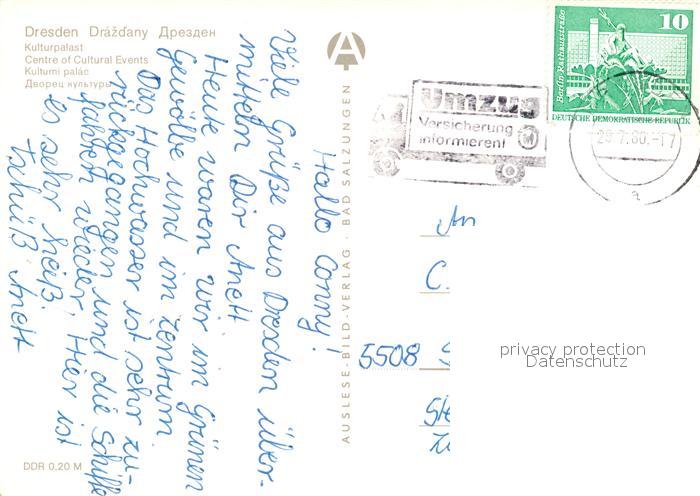 Dresden Drážďany Дрезден
Kulturpalast
Centre of Cultural Events
Kulturní palác
Дворец культуры
Hallo Conny!
Viele Grüße aus Dresden über-
mitteln Dir Anett
Heute waren wir im Grünen
Gewölbe und im Zentrum.
Das Hochwasser ist sehr zu-
rückgegangen und die Schiffe
fahren wieder. Hier ist
es sehr heiß.
Tschüß Anett
DDR 0,20 M
AUSLESE-BILD-VERLAG · BAD SALZUNGEN
A
Umzug
Versicherung
informieren!
Berlin, Rathausstraße
10
DEUTSCHE DEMOKRATISCHE REPUBLIK
29.7.80.-17
a
An
C.
5508
privacy protection
Datenschutz